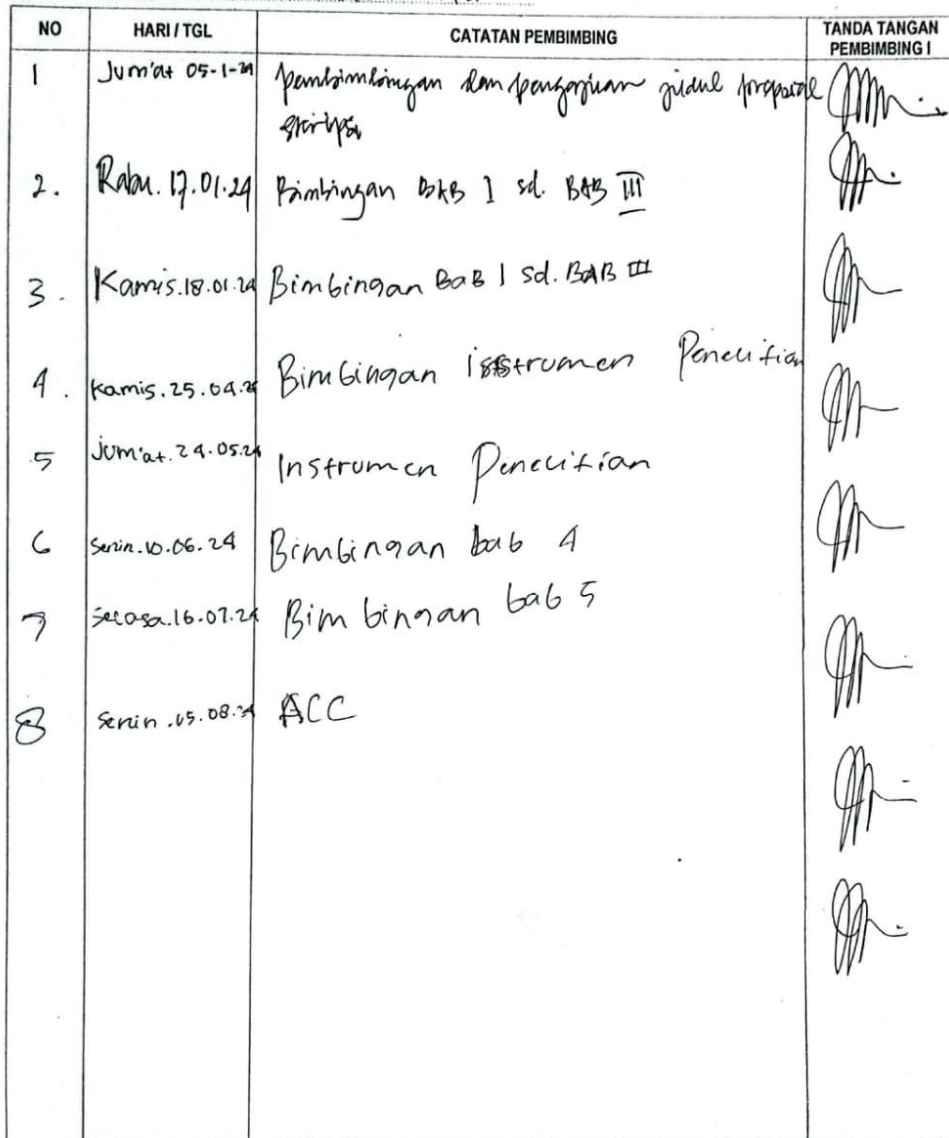 NO HARI / TGL CATATAN PEMBIMBING TANDA TANGAN PEMBIMBING I
1 Jum'at 05-1-24 pembimbingan dan pengajuan judul proposal
skripsi
2. Rabu. 17.01.24 Bimbingan BAB I sd. BAB III
3. Kamis.18.01.24 Bimbingan BaB I sd. BAB III
4. Kamis.25.04.24 Bimbingan instrumen Penelitian
5 Jum'at.24.05.24 Instrumen Penelitian
6 Senin.10.06.24 Bimbingan bab 4
7 Selasa.16.07.24 Bimbingan bab 5
8 Senin.05.08.24 ACC